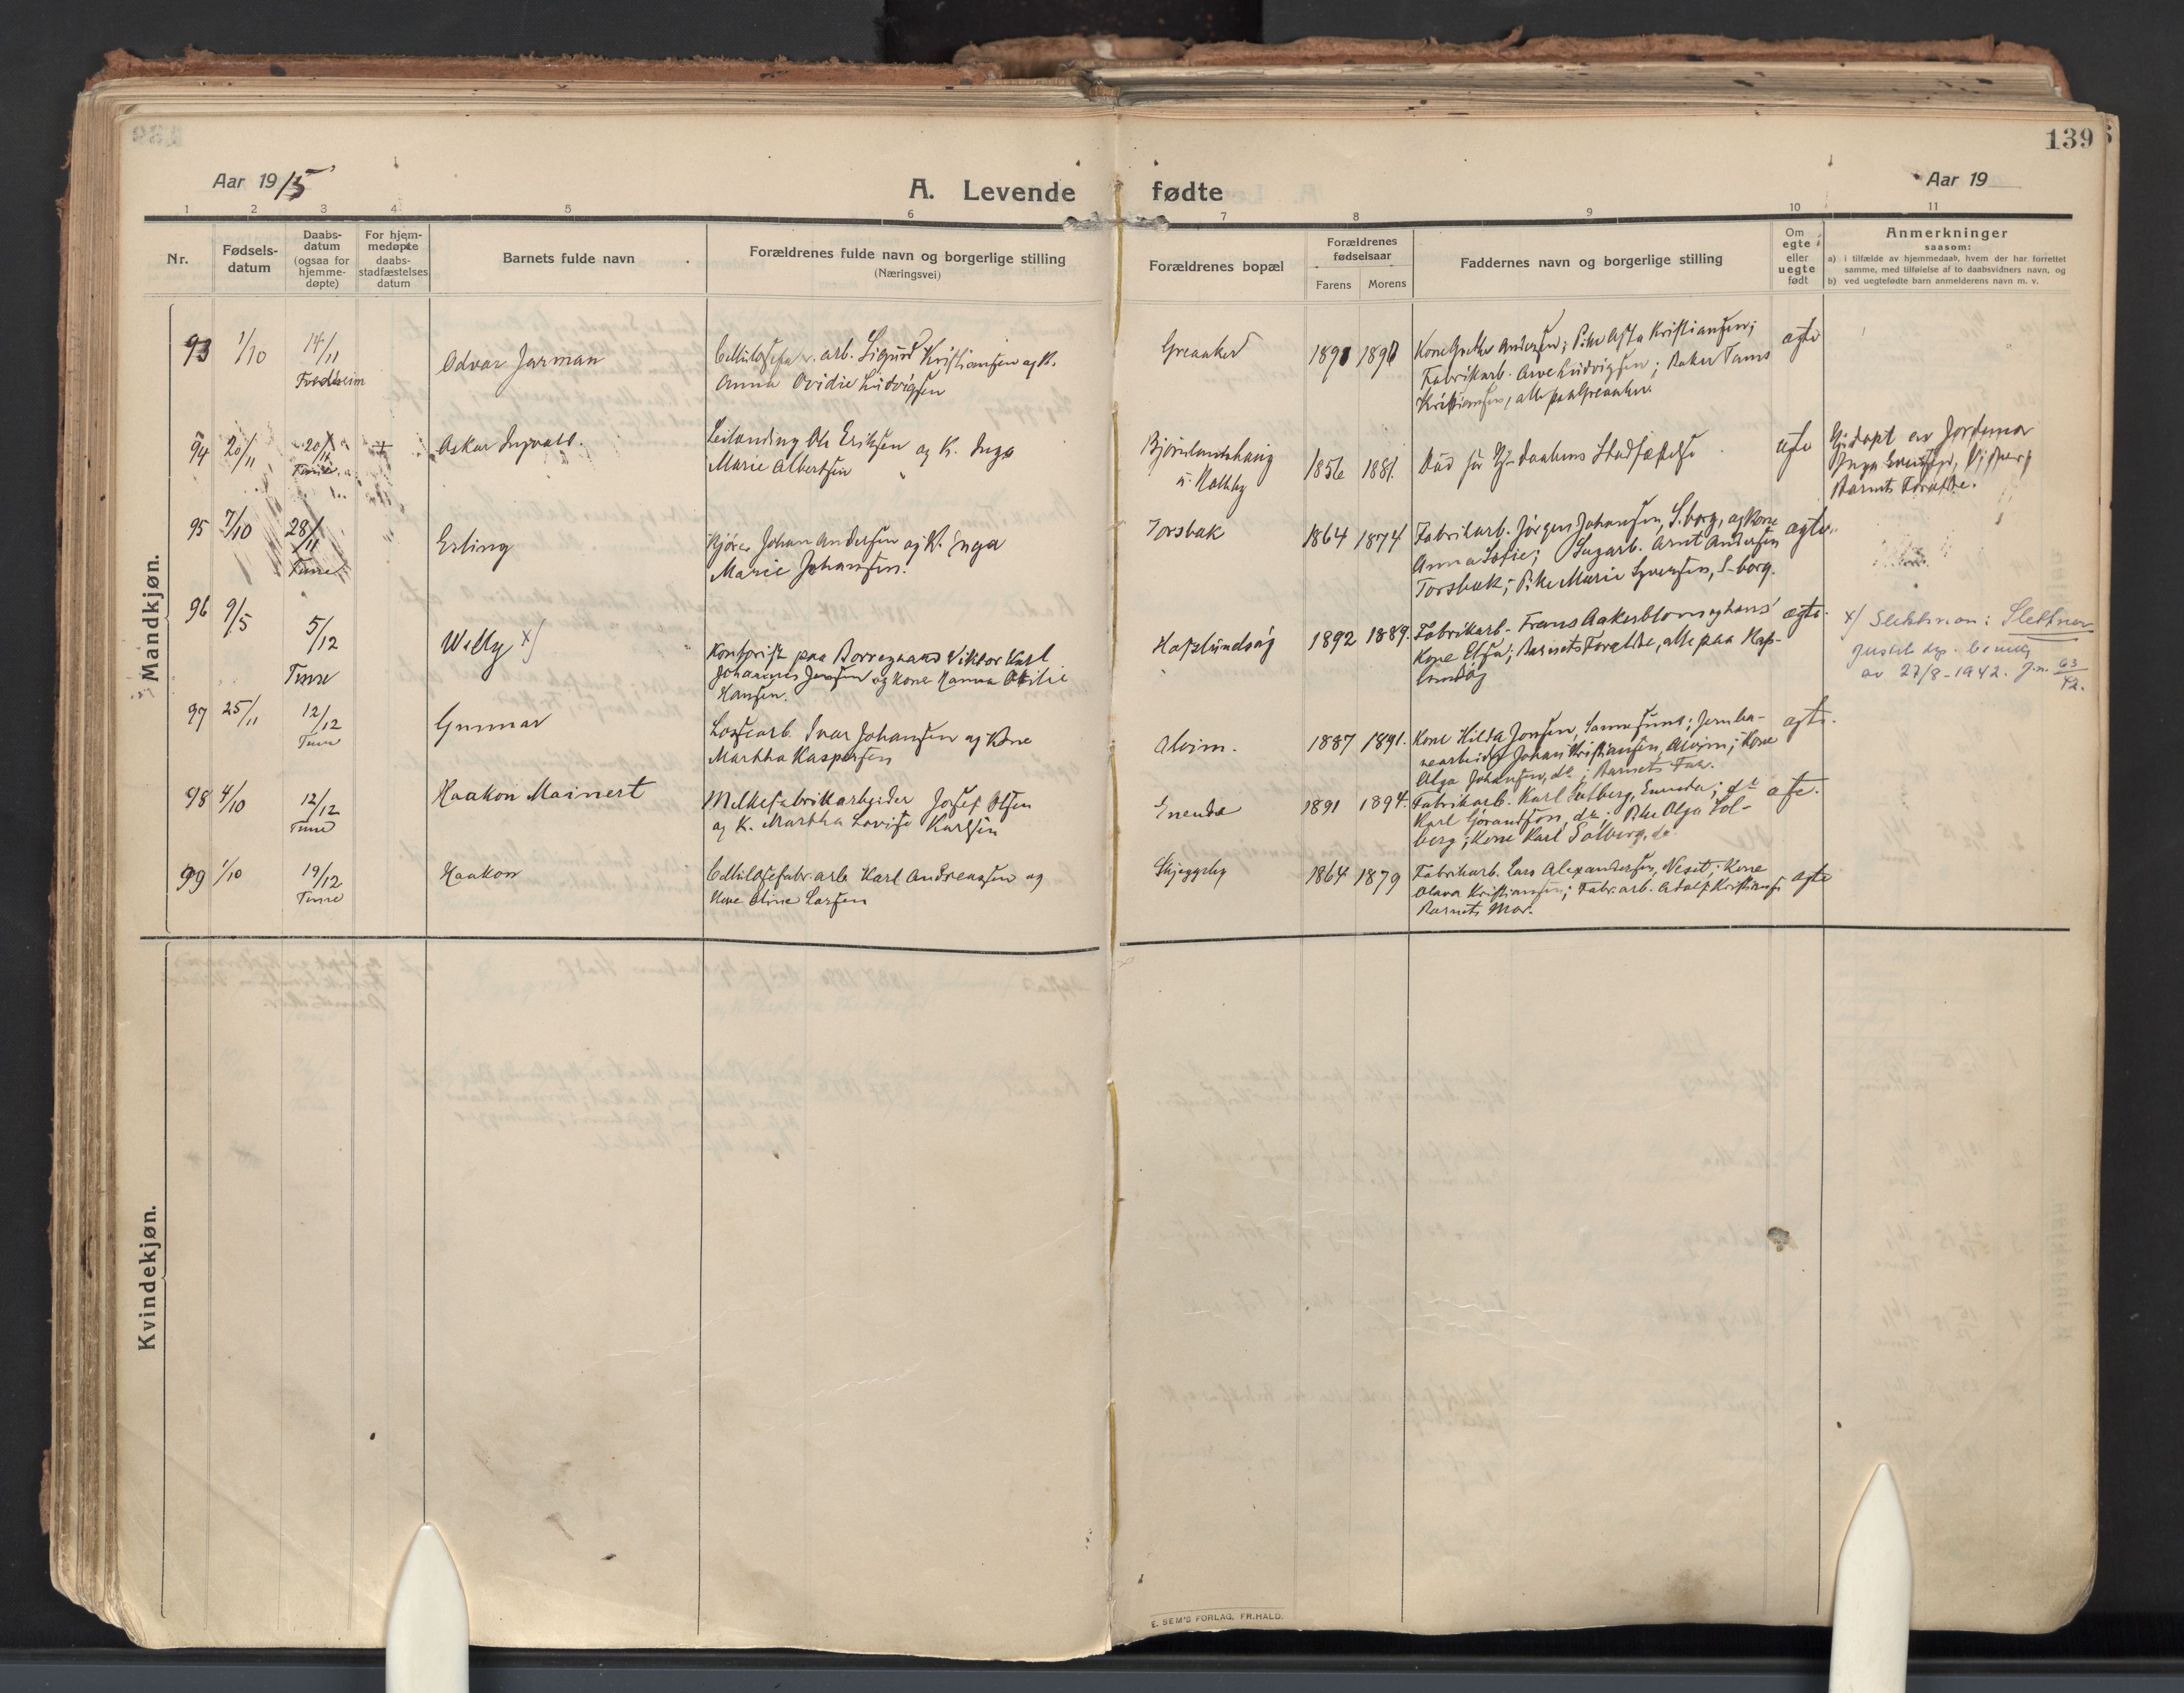 139
Aar 1915
A. Levende fødte
Aar 19
1 2 3 4 5 6 7 8 9 10 11
Nr.
Fødsels-
datum
Daabs-
datum
(ogsaa for
hjemme-
døpte)
For hjem-
medøpte
daabs-
stadfæstelses
datum
Barnets fulde navn
Forældrenes fulde navn og borgerlige stilling
(Næringsvei)
Forældrenes bopæl
Forældrenes
fødselsaar
Farens
Morens
Faddernes navn og borgerlige stilling
Om
egte
eller
uegte
født
Anmerkninger
saasom:
a) i tilfælde av hjemmedaab, hvem der har forrettet
samme, med tilføielse af to daabsvidners navn, og
b) ved uegtefødte barn anmelderens navn m. v.
Mandkjøn.
93 1/10 14/11
Odvar Jarman
Cellulosefabr. arb. Sigurd Kristiansen og K.
Anna Ovidie Ludvigsen
Greaaker
Kone Grethe Andersen; Pike Asta Kristiansen;
Fabrikarb. Arve Ludvigsen; Baker
Kristiansen, alle paa Greaaker.
ægte
94 20/11 20/11 +
Tune
Oskar Ingvald.
Ole Eriksen og K. Inga
Marie Albertsen
1856 1881.
Død før Hj. daabens Stadfæstelse
ægte
Hj. døpt av Jordmor
Barnets Forældre.
95 7/10 28/11
Tune
Erling
Kjører Johan Andersen og K. Inga
Marie Johansen.
Torsbak
1864 1874
Fabrikarb. Jørgen Johansen, S.borg, og Kone
Anna Sofie; Sagarb. Arnt Andersen
Torsbak; Pike Marie Syversen, S-borg.
ægte
96 9/5 5/12
Tune
Willy x)
Kontorist paa Borregaard Viktor Karl
Johannes Jensen og Kone Hanna Otilie
Hansen.
Hafslundsøy
1892 1889.
Fabrikarb. Frans Aakerblom og hans
Kone Elsa; Barnets Forældre, alle paa Haf-
lundøy
ægte
x) Slektsnavn: Slettner
Justisdep. bevill.
av 27/8-1942. J.n. 63/42.
97 25/11 12/12
Tune
Gunnar
Lossearb. Ivar Johansen og Kone
Martha Kaspersen
Alvim.
1887 1891.
Kone Hilda Jonsen, Sannesund; Jernba-
nearbeider Johan Kristiansen, Alvim; Kone
Olga Johansen, do; Barnets Far.
ægte.
98 4/10 12/12
Tune
Haakon Mainert
Melkefabrikarbeider Josef Olsen
og K. Martha Lovise Karlsen
Eneuda
1891 1894.
Fabrikarb. Karl Solberg, Eneuda; do
Karl Gorandson, do; Pike Olga Sol-
berg; Kone Karl Solberg, do
ægte.
99 1/10 19/12
Tune
Haakon
Cellulosefabr. arb. Karl Andreassen og
Kone Oline Larsen
Skjeggeby
1864 1879
Fabrikarb. Lars Alexandersen, Vesit; Kone
Olava Kristiansen; Fabr. arb. Adolf Kristians.
Barnets Mor.
ægte
Kvindekjøn.
E. SEM'S FORLAG. FR.HALD.